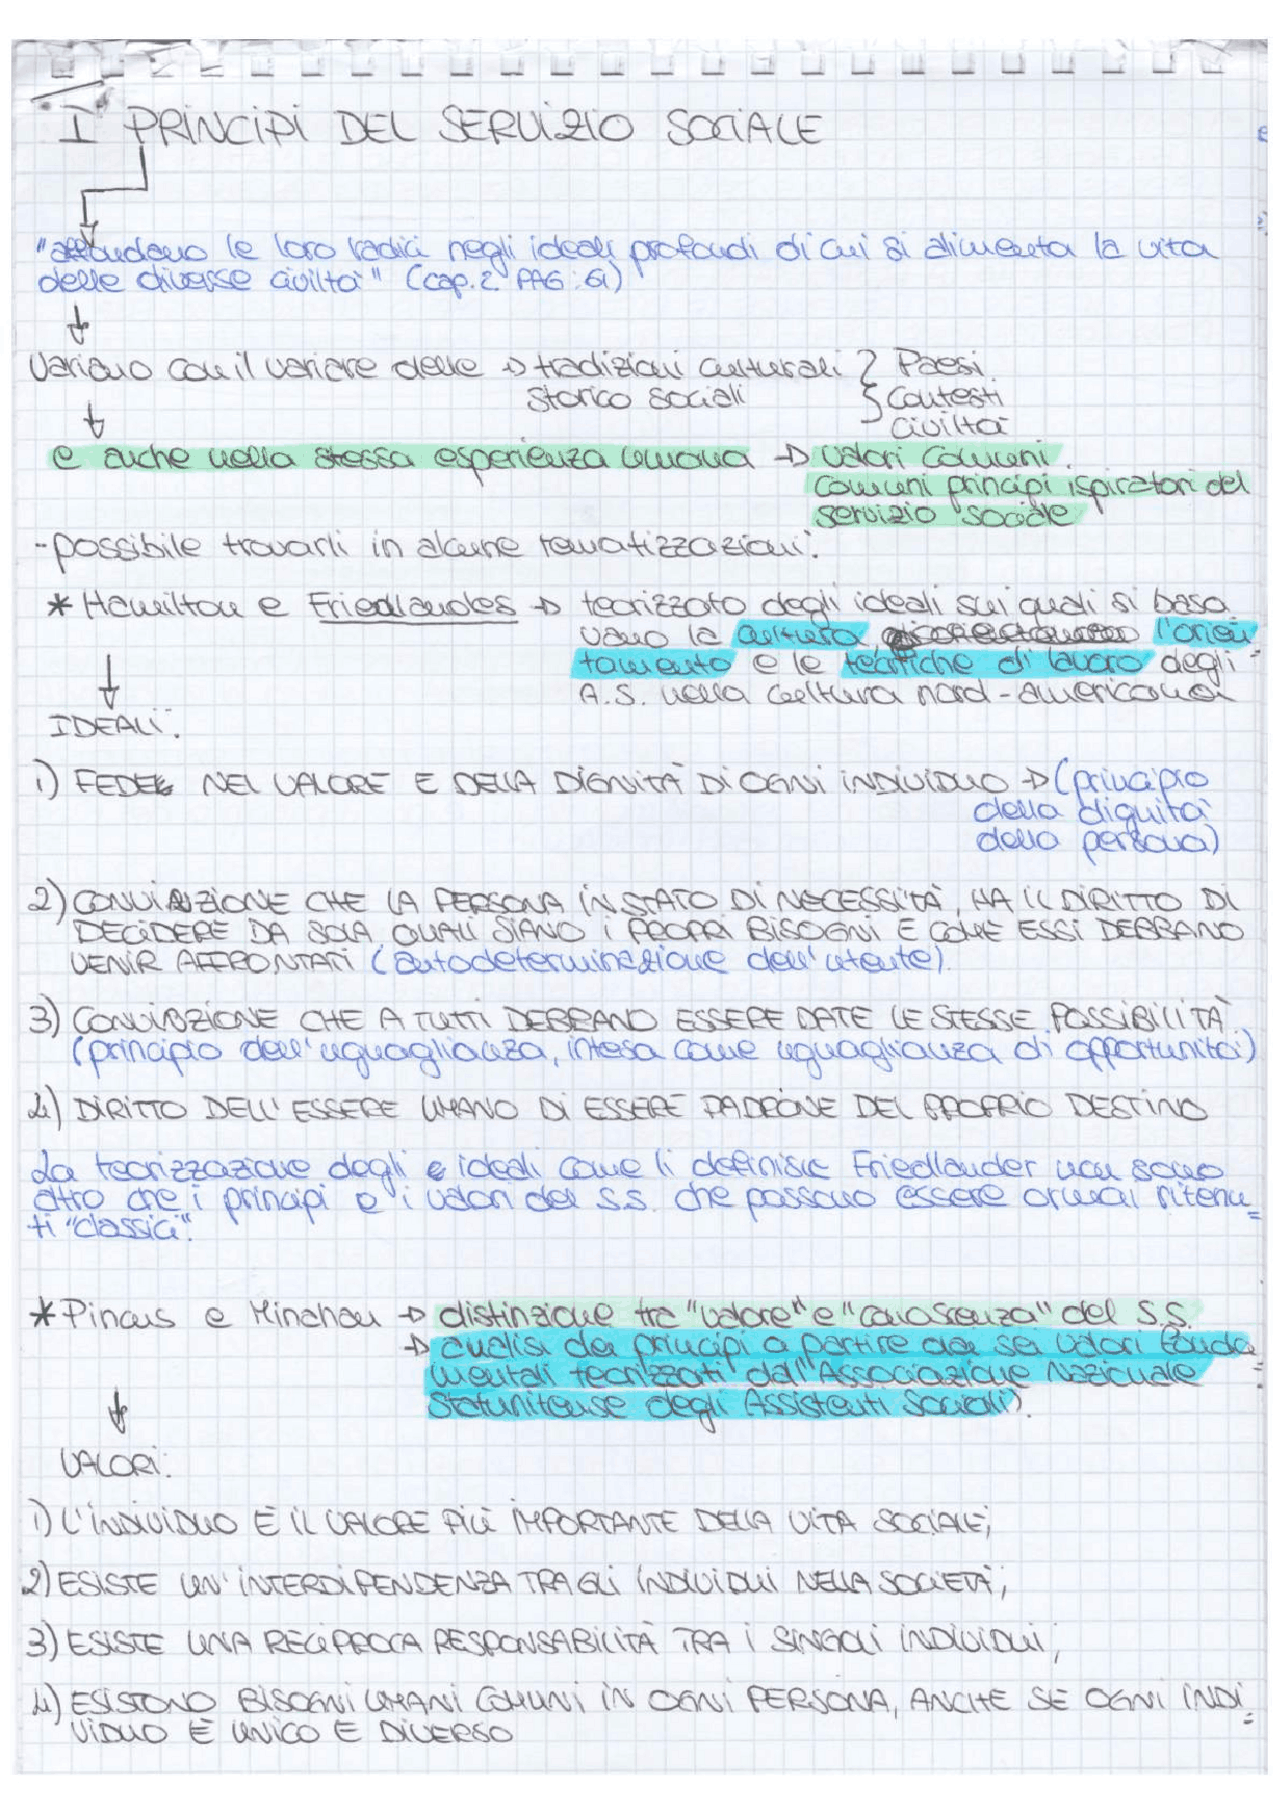 I PRINCIPI DEL SERVIZIO SOCIALE
"affondano le loro radici negli ideali profondi di cui si alimenta la vita
delle diverse civiltà" (cap. 2 PAG: 61)
Variano con il variare delle → tradizioni culturali } Paesi
storico sociali } Contesti
civiltà
e anche nella stessa esperienza umana → valori comuni.
comuni principi ispiratori del
servizio sociale
- possibile trovarli in alcune tematizzazioni:
* Hamilton e Friedlandes → teorizzato degli ideali sui quali si basa
vano la cultura l'orien
tamento e le tecniche di lavoro degli
A.S. nella cultura nord-americana
IDEALI:
1) FEDE NEL VALORE E DELLA DIGNITÀ DI OGNI INDIVIDUO → (principio
della dignità
della persona)
2) CONVINZIONE CHE LA PERSONA IN STATO DI NECESSITÀ, HA IL DIRITTO DI
DECIDERE DA SOLA QUALI SIANO I PROPRI BISOGNI E COME ESSI DEBBANO
VENIR AFFRONTATI (autodeterminazione dell'utente).
3) CONVINZIONE CHE A TUTTI DEBBANO ESSERE DATE LE STESSE POSSIBILITÀ
(principio dell'uguaglianza, intesa come uguaglianza di opportunità)
4) DIRITTO DELL'ESSERE UMANO DI ESSERE PADRONE DEL PROPRIO DESTINO
La teorizzazione degli ideali come li definisce Friedlander non sono
altro che i principi e i valori del S.S. che possono essere ormai ritenu=
ti "classici".
* Pincus e Minahan → distinzione tra "valore" e "conoscenza" del S.S.
→ analisi dei principi a partire dai sei valori fonda
mentali teorizzati dall'Associazione Nazionale
Statunitense degli Assistenti Sociali).
VALORI:
1) L'INDIVIDUO È IL VALORE PIÙ IMPORTANTE DELLA VITA SOCIALE;
2) ESISTE UN'INTERDIPENDENZA TRA GLI INDIVIDUI NELLA SOCIETÀ;
3) ESISTE UNA RECIPROCA RESPONSABILITÀ TRA I SINGOLI INDIVIDUI;
4) ESISTONO BISOGNI UMANI COMUNI IN OGNI PERSONA, ANCHE SE OGNI INDI=
VIDUO È UNICO E DIVERSO